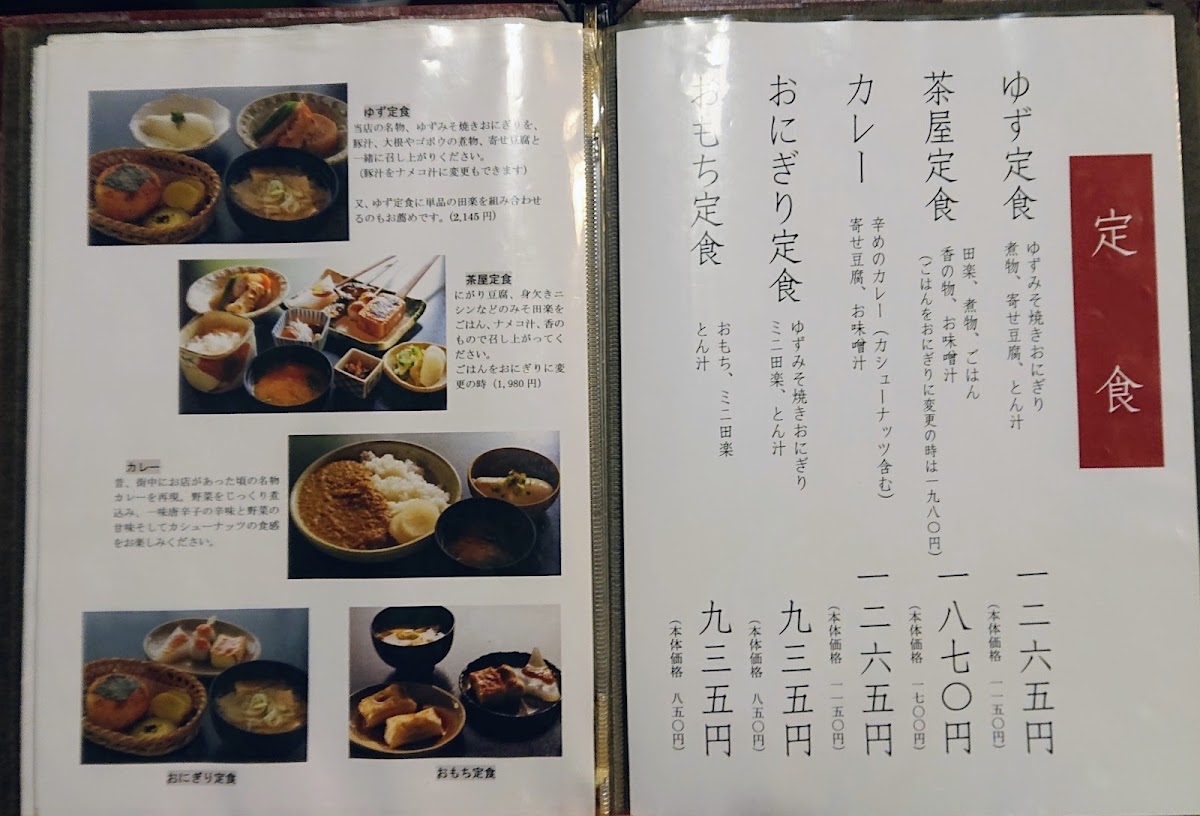 ゆず定食
当店の名物、ゆずみそ焼きおにぎりを、
豚汁、大根やゴボウの煮物、寄せ豆腐と
一緒に召し上がりください。
(豚汁をナメコ汁に変更もできます)
又、ゆず定食に単品の田楽を組み合わせ
るのもお薦めです。(2,145円)
茶屋定食
にがり豆腐、身欠きニ
シンなどのみそ田楽を
ごはん、ナメコ汁、香の
もので召し上がってく
ださい。
ごはんをおにぎりに変
更の時(1,980円)
カレー
昔、街中にお店があった頃の名物
カレーを再現。野菜をじっくり煮
込み、一味唐辛子の辛味と野菜の
甘味そしてカシューナッツの食感
をお楽しみください。
おにぎり定食
おもち定食
定食
ゆず定食
ゆずみそ焼きおにぎり
煮物、寄せ豆腐、とん汁
一二六五円
(本体価格 一一五〇円)
茶屋定食
田楽、煮物、ごはん
香の物、お味噌汁
(ごはんをおにぎりに変更の時は一九八〇円)
一八七〇円
(本体価格 一七〇〇円)
カレー
辛めのカレー(カシューナッツ含む)
寄せ豆腐、お味噌汁
一二六五円
(本体価格 一一五〇円)
おにぎり定食
ゆずみそ焼きおにぎり
ミニ田楽、とん汁
九三五円
(本体価格 八五〇円)
おもち定食
おもち、ミニ田楽
とん汁
九三五円
(本体価格 八五〇円)